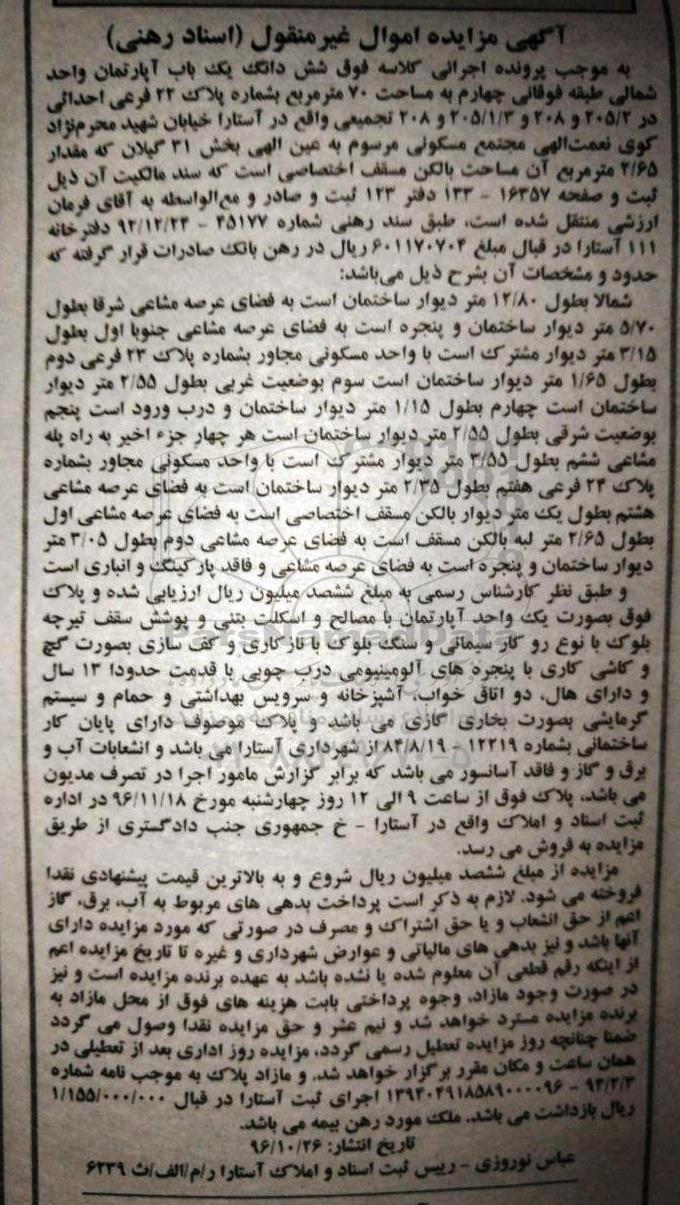 آگهی مزایده اموال غیرمنقول (اسناد رهنی)
به موجب پرونده اجرائی کلاسه فوق شش دانگ یک باب آپارتمان واحد
شمالی طبقه فوقانی چهارم به مساحت ۷۰ مترمربع بشماره پلاک ۲۲ فرعی احداثی
در ۲۰۵/۲ و ۲۰۸ و ۲۰۵/۱/۳ و ۲۰۸ تجمیعی واقع در آستارا خیابان شهید محرم‌نژاد
کوی نعمت‌الهی مجتمع مسکونی مرسوم به عین الهی بخش ۳۱ گیلان که مقدار
۲/۶۵ مترمربع آن مساحت بالکن مسقف اختصاصی است که سند مالکیت آن ذیل
ثبت و صفحه ۱۶۳۵۷ - ۱۳۳ دفتر ۱۲۳ ثبت و صادر و مع‌الواسطه به آقای فرمان
ارزشی منتقل شده است، طبق سند رهنی شماره ۴۵۱۷۷ - ۹۲/۱۲/۲۴ دفترخانه
۱۱۱ آستارا در قبال مبلغ ۶۰۱۱۷۰۷۰۴ ریال در رهن بانک صادرات قرار گرفته که
حدود و مشخصات آن بشرح ذیل می‌باشد:
شمالا بطول ۱۲/۸۰ متر دیوار ساختمان است به فضای عرصه مشاعی شرقا بطول
۵/۷۰ متر دیوار ساختمان و پنجره است به فضای عرصه مشاعی جنوبا اول بطول
۳/۱۵ متر دیوار مشترک است با واحد مسکونی مجاور بشماره پلاک ۲۳ فرعی دوم
بطول ۱/۶۵ متر دیوار ساختمان است سوم بوضعیت غربی بطول ۲/۵۵ متر دیوار
ساختمان است چهارم بطول ۱/۱۵ متر دیوار ساختمان و درب ورود است پنجم
بوضعیت شرقی بطول ۲/۵۵ متر دیوار ساختمان است هر چهار جزء اخیر به راه پله
مشاعی ششم بطول ۳/۵۵ متر دیوار مشترک است با واحد مسکونی مجاور بشماره
پلاک ۲۴ فرعی هفتم بطول ۲/۳۵ متر دیوار ساختمان است به فضای عرصه مشاعی
هشتم بطول یک متر دیوار بالکن مسقف اختصاصی است به فضای عرصه مشاعی اول
بطول ۲/۶۵ متر لبه بالکن مسقف است به فضای عرصه مشاعی دوم بطول ۳/۰۵ متر
دیوار ساختمان و پنجره است به فضای عرصه مشاعی و فاقد پارکینگ و انباری است
و طبق نظر کارشناس رسمی به مبلغ ششصد میلیون ریال ارزیابی شده و پلاک
فوق بصورت یک واحد آپارتمان با مصالح و اسکلت بتنی و پوشش سقف تیرچه
بلوک با نوع رو کار سیمانی و سنگ بلوک با نازکاری و کف سازی بصورت گچ
و کاشی کاری با پنجره های آلومینیومی درب چوبی با قدمت حدودا ۱۳ سال
و دارای هال، دو اتاق خواب، آشپزخانه و سرویس بهداشتی و حمام و سیستم
گرمایشی بصورت بخاری گازی می باشد و پلاک موصوف دارای پایان کار
ساختمانی بشماره ۱۲۲۱۹ - ۸۴/۸/۱۹ از شهرداری آستارا می باشد و انشعابات آب و
برق و گاز و فاقد آسانسور می باشد که برابر گزارش مامور اجرا در تصرف مدیون
می باشد، پلاک فوق از ساعت ۹ الی ۱۲ روز چهارشنبه مورخ ۹۶/۱۱/۱۸ در اداره
ثبت اسناد و املاک واقع در آستارا - خ جمهوری جنب دادگستری از طریق
مزایده به فروش می رسد.
مزایده از مبلغ ششصد میلیون ریال شروع و به بالاترین قیمت پیشنهادی نقدا
فروخته می شود. لازم به ذکر است پرداخت بدهی های مربوط به آب، برق، گاز
اعم از حق انشعاب و یا حق اشتراک و مصرف در صورتی که مورد مزایده دارای
آنها باشد و نیز بدهی های مالیاتی و عوارض شهرداری و غیره تا تاریخ مزایده اعم
از اینکه رقم قطعی آن معلوم شده یا نشده باشد به عهده برنده مزایده است و نیز
در صورت وجود مازاد، وجوه پرداختی بابت هزینه های فوق از محل مازاد به
برنده مزایده مسترد خواهد شد و نیم عشر و حق مزایده نقدا وصول می گردد
ضمنا چنانچه روز مزایده تعطیل رسمی گردد، مزایده روز اداری بعد از تعطیلی در
همان ساعت و مکان مقرر برگزار خواهد شد. و مازاد پلاک به موجب نامه شماره
۱۳۹۴۰۴۹۱۸۵۸۹۰۰۰۰۹۶ - ۹۴/۲/۳ اجرای ثبت آستارا در قبال ۱/۱۵۵/۰۰۰/۰۰۰
ریال بازداشت می باشد. ملک مورد رهن بیمه می باشد.
تاریخ انتشار: ۹۶/۱۰/۲۶
عباس نوروزی - رییس ثبت اسناد و املاک آستارا ر/م/الف/ث ۶۲۳۹